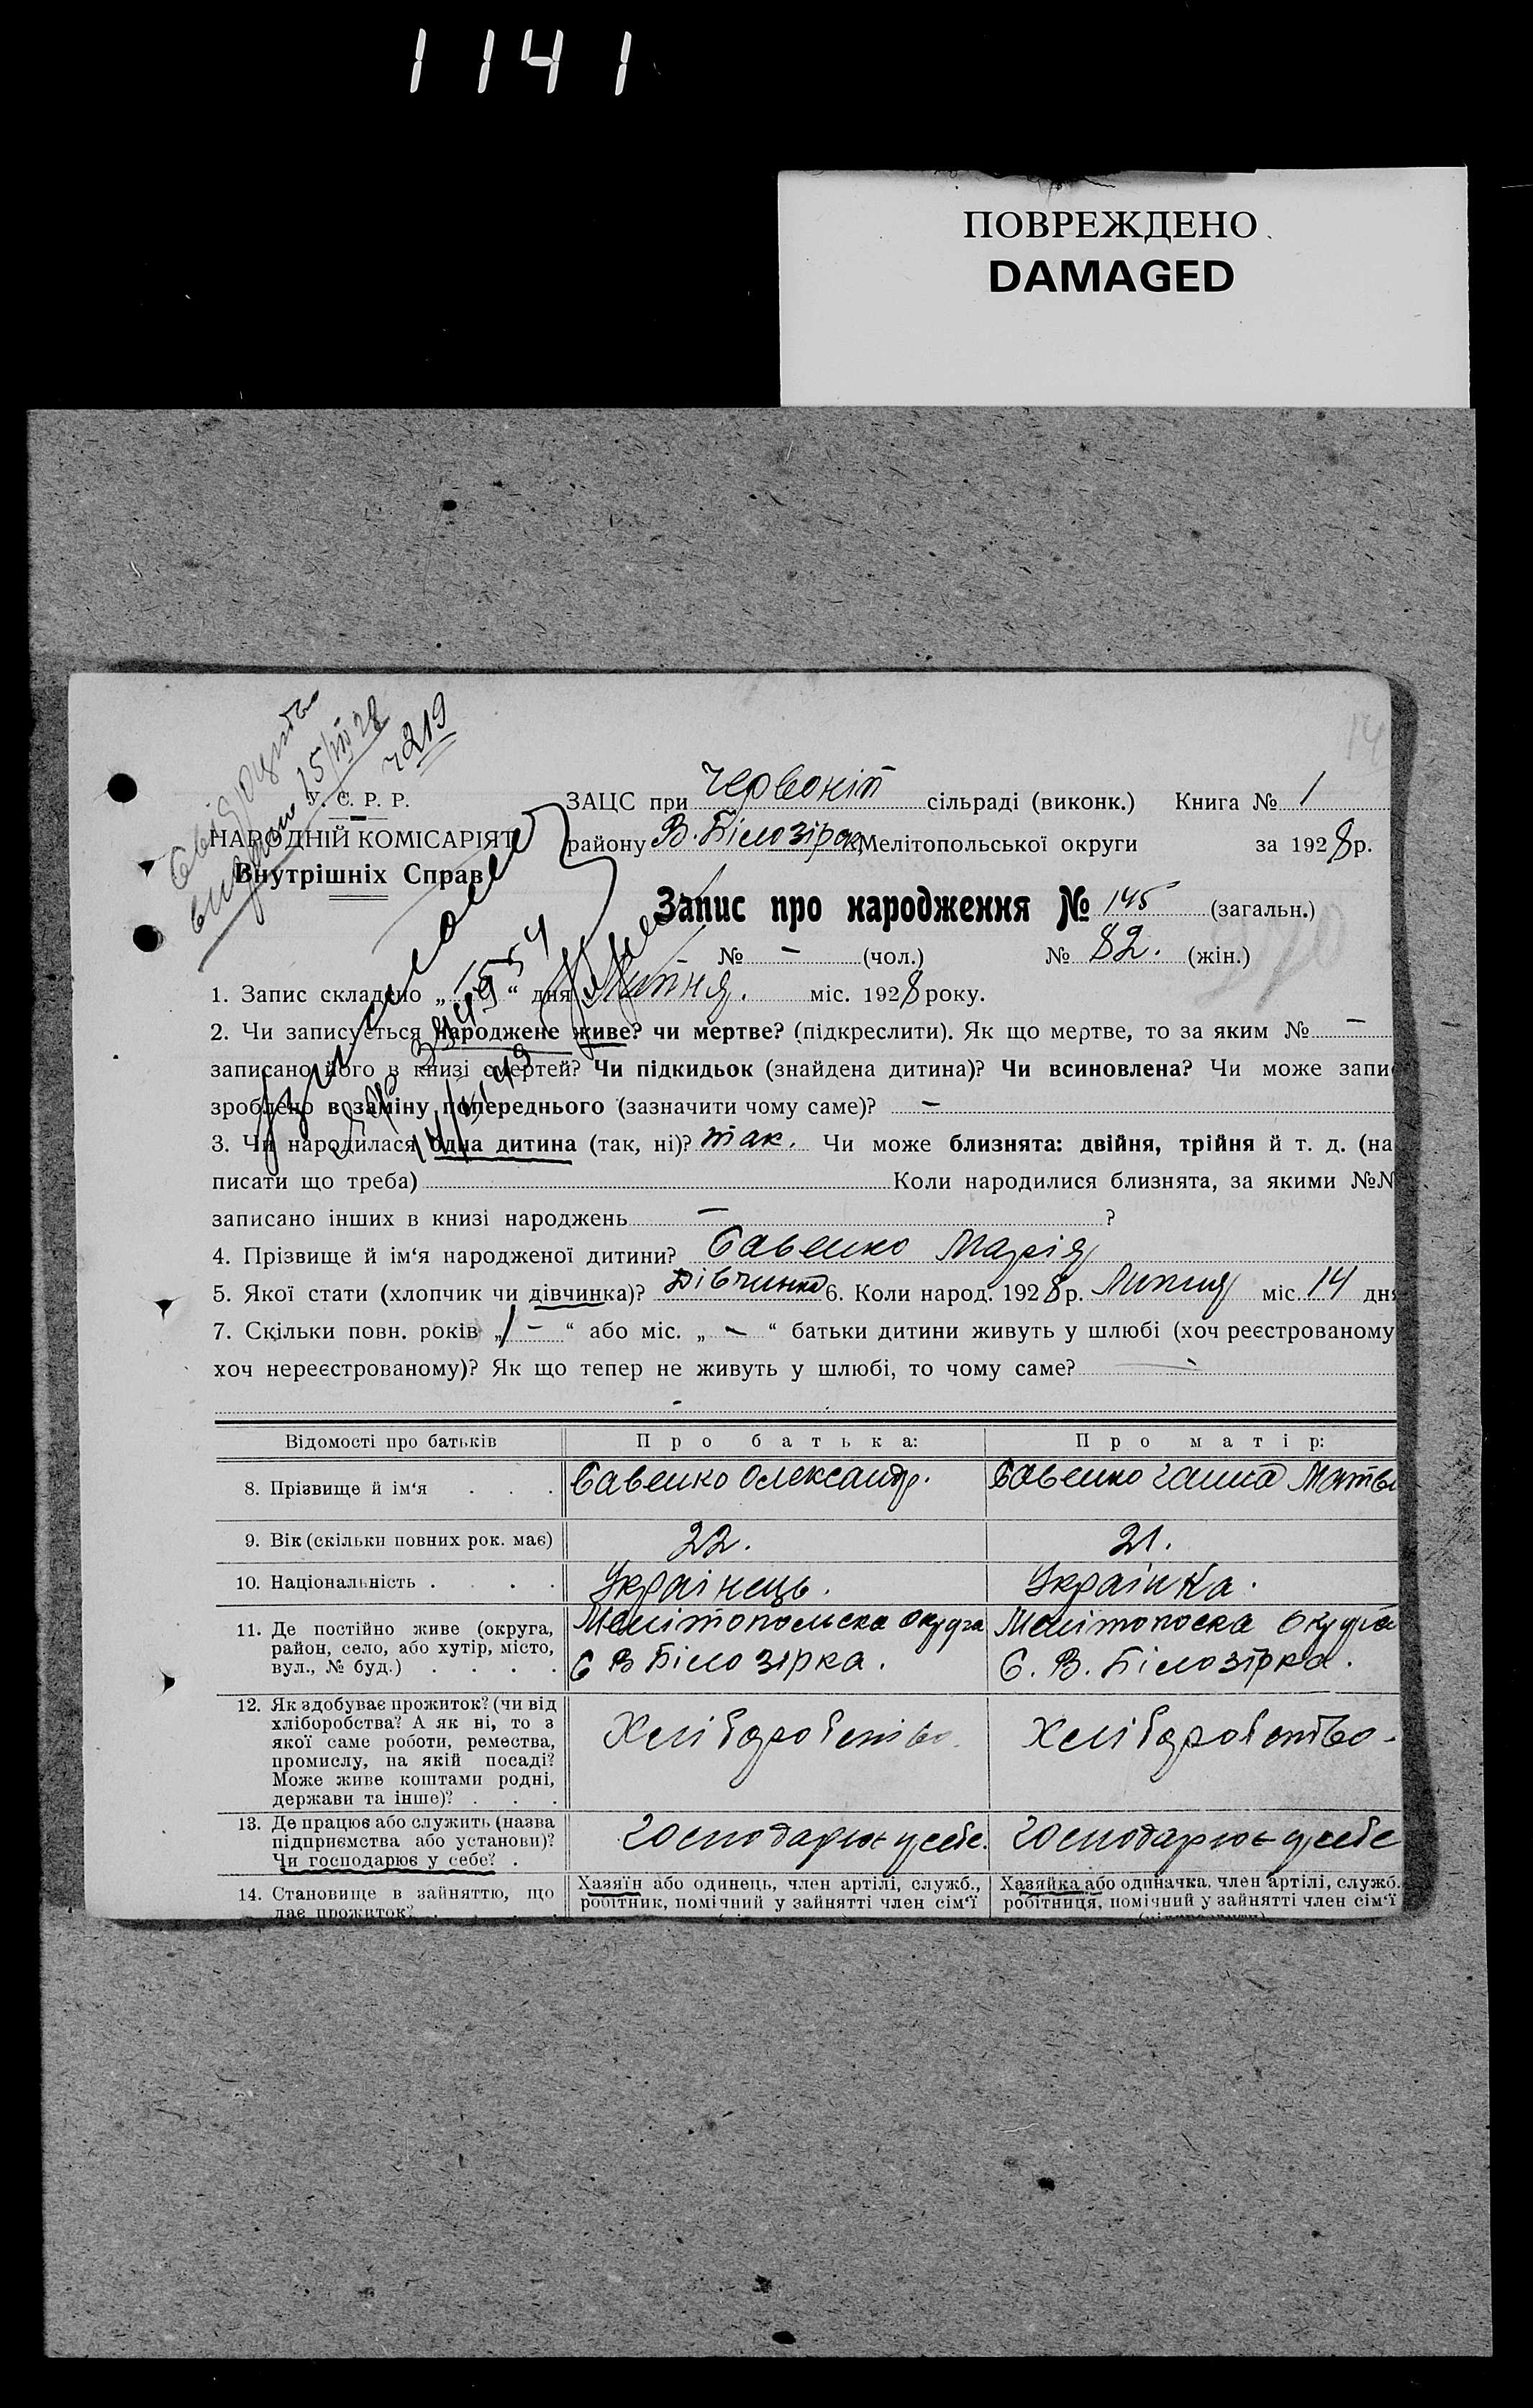 1141
ПОВРЕЖДЕНО
DAMAGED
видано 15/VIII 28
ч 219
У. С. Р. Р.
НАРОДНІЙ КОМІСАРІЯТ
Внутрішніх Справ
ЗАЦС при Червоній сільраді (виконк.) Книга № 1
району В. Білозірка Мелітопольської округи за 1928 р.
Запис про народження № 145 (загальн.)
№ - (чол.) № 82. (жін.)
270
1. Запис складено „ “ дня Липня. міс. 1928 року.
2. Чи записується народжене живе? чи мертве? (підкреслити). Як що мертве, то за яким № —
записано його в книзі смертей? Чи підкидьок (знайдена дитина)? Чи всиновлена? Чи може запи
зроблено в заміну попереднього (зазначити чому саме)? —
3. Чи народилася одна дитина (так, ні)? так. Чи може близнята: двійня, трійня й т. д. (на
писати що треба) Коли народилися близнята, за якими №№
записано інших в книзі народжень — ?
4. Прізвище й ім'я народженої дитини? Савенко Марія
5. Якої стати (хлопчик чи дівчинка)? Дівчинка 6. Коли народ. 1928 р. Липня міс. 14 дня
7. Скільки повн. років „ 1 - “ або міс. „ - “ батьки дитини живуть у шлюбі (хоч реєстрованому
хоч нереєстрованому)? Як що тепер не живуть у шлюбі, то чому саме? -
Відомості про батьків Про батька: Про матір:
8. Прізвище й ім'я . . . Савенко Олександр. Савенко Ганна Матв
9. Вік (скільки повних рок. має) 22. 21.
10. Національність . . . . Українець. Українка.
11. Де постійно живе (округа, район, село, або хутір, місто, вул., № буд.) . . . . Мелітопольска Округа Мелітопоска Округа
С В Білозірка. С. В. Білозірка.
12. Як здобуває прожиток? (чи від хліборобства? А як ні, то з якої саме роботи, ремества, промислу, на якій посаді? Може живе коштами родні, держави та інше)? . . . Хліборобство. Хліборобство -
13. Де працює або служить (назва підприємства або установи)? Чи господарює у себе? . Господарює у себе. Господарює у себе
14. Становище в зайняттю, що дає прожиток? . Хазяїн або одинець, член артілі, служб., робітник, помічний у зайнятті член сім'ї Хазяйка або одиначка, член артілі, служб. робітниця, помічний у зайнятті член сім'ї